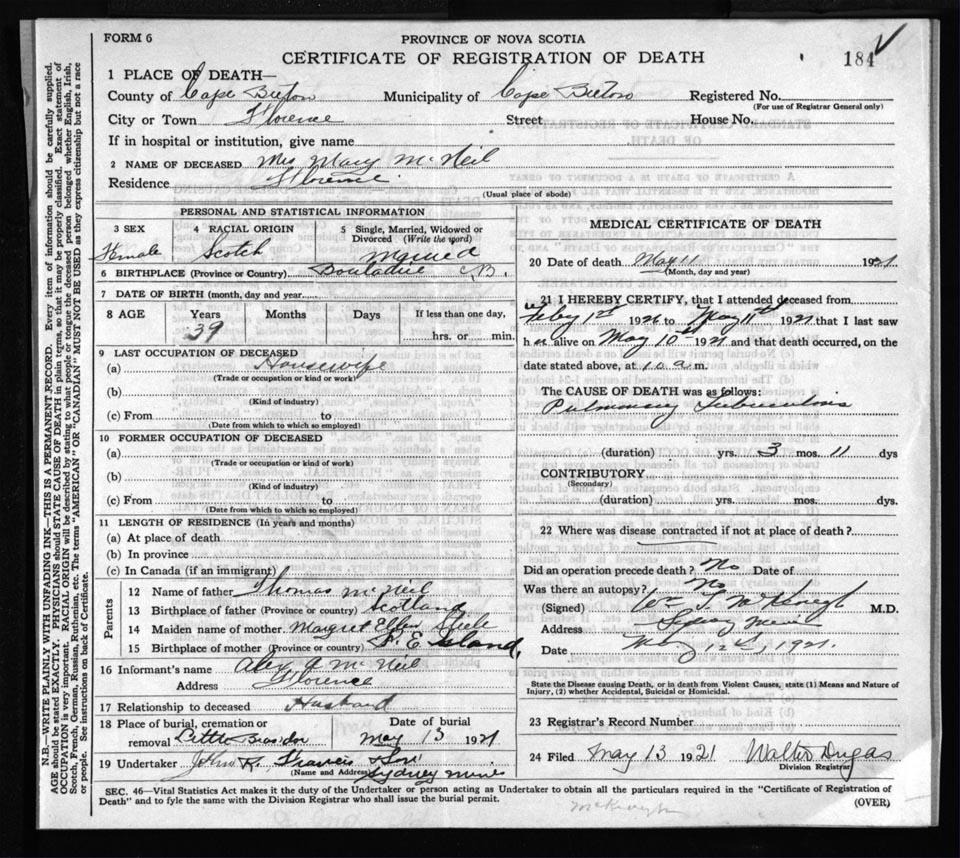 FORM 6
PROVINCE OF NOVA SCOTIA
CERTIFICATE OF REGISTRATION OF DEATH
184
1 PLACE OF DEATH—
County of Cape Breton Municipality of Cape Breton Registered No.
(For use of Registrar General only)
City or Town Florence Street House No.
If in hospital or institution, give name
2 NAME OF DECEASED Mrs Mary McNeil
Residence Florence
(Usual place of abode)
PERSONAL AND STATISTICAL INFORMATION
3 SEX
Female
4 RACIAL ORIGIN
Scotch
5 Single, Married, Widowed or
Divorced (Write the word)
Married
6 BIRTHPLACE (Province or Country)
7 DATE OF BIRTH (month, day and year
8 AGE Years Months Days If less than one day,
39 hrs. or min.
9 LAST OCCUPATION OF DECEASED
(a) Housewife
(Trade or occupation or kind of work)
(b)
(Kind of industry)
(c) From to
(Date from which to which so employed)
10 FORMER OCCUPATION OF DECEASED
(a)
(Trade or occupation or kind of work)
(b)
(Kind of industry)
(c) From to
(Date from which to which so employed)
11 LENGTH OF RESIDENCE (In years and months)
(a) At place of death
(b) In province
(c) In Canada (if an immigrant)
Parents
12 Name of father Thomas McNeil
13 Birthplace of father (Province or country) Scotland
14 Maiden name of mother Margret Ellen Steele
15 Birthplace of mother (Province or country) P. E Island,
16 Informant's name Alex A McNeil
Address Florence
17 Relationship to deceased Husband
18 Place of burial, cremation or
removal Little Brasdor
Date of burial
May 13 1921
19 Undertaker John R. Francis & Son
(Name and Address) Sydney Mines
MEDICAL CERTIFICATE OF DEATH
20 Date of death May 11 1921
(Month, day and year)
21 I HEREBY CERTIFY, that I attended deceased from
Feby 1st 1921 to May 11th 1921 that I last saw
her alive on May 10th 1921 and that death occurred, on the
date stated above, at 10 a.m.
The CAUSE OF DEATH was as follows:
Pulmonary Tuberculosis
(duration) yrs. 3 mos. 11 dys
CONTRIBUTORY
(Secondary)
(duration) yrs. mos. dys.
22 Where was disease contracted if not at place of death?
Did an operation precede death? No Date of
Was there an autopsy? No
(Signed) M.D.
Address Sydney Mines
Date May 12th, 1921.
State the Disease causing Death, or in death from Violent Causes, state (1) Means and Nature of
Injury, (2) whether Accidental, Suicidal or Homicidal.
23 Registrar's Record Number
24 Filed May 13 1921 Walter Dugas
Division Registrar
SEC. 46—Vital Statistics Act makes it the duty of the Undertaker or person acting as Undertaker to obtain all the particulars required in the "Certificate of Registration of
Death" and to fyle the same with the Division Registrar who shall issue the burial permit.
(OVER)
N.B.—WRITE PLAINLY WITH UNFADING INK—THIS IS A PERMANENT RECORD. Every item of information should be carefully supplied.
AGE should be stated EXACTLY. PHYSICIANS should STATE CAUSE OF DEATH in plain terms, so that it may be properly classified. Exact statement of
OCCUPATION is very important. RACIAL ORIGIN will be described by stating to what people or tongue the deceased person belonged whether English, Irish,
Scotch, French, German, Russian, Ruthenian, etc. The terms "AMERICAN" OR "CANADIAN" MUST NOT BE USED as they express citizenship but not a race
or people. See instructions on back of Certificate.